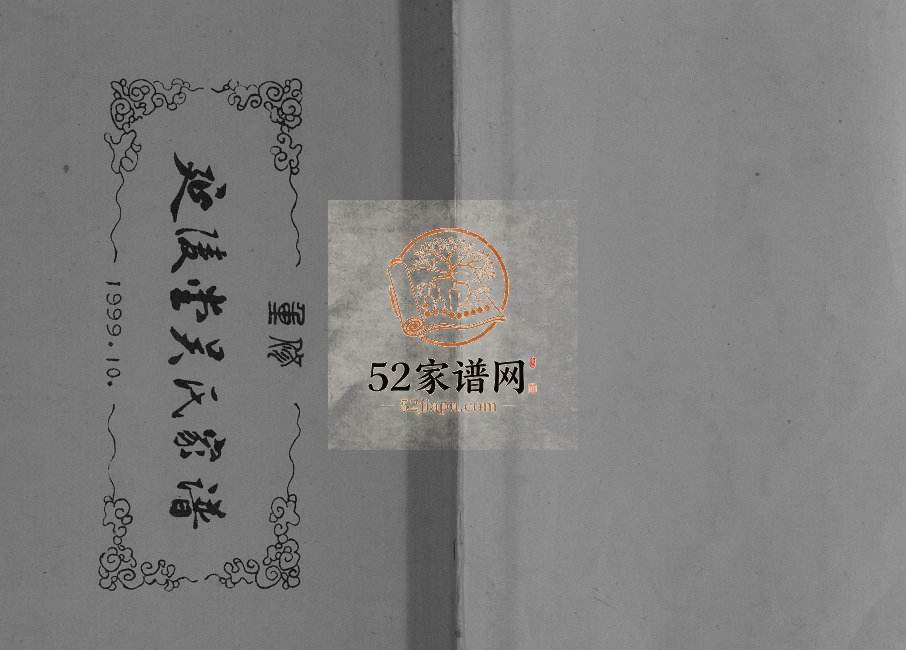 重修
延陵堂吴氏家谱
1999.10.
52家谱网
52jiapu.com